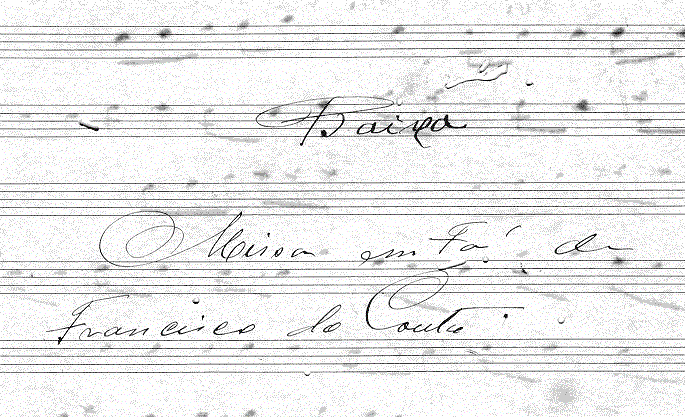 Baixa
Missa em Fá de
Francisco do Couto.